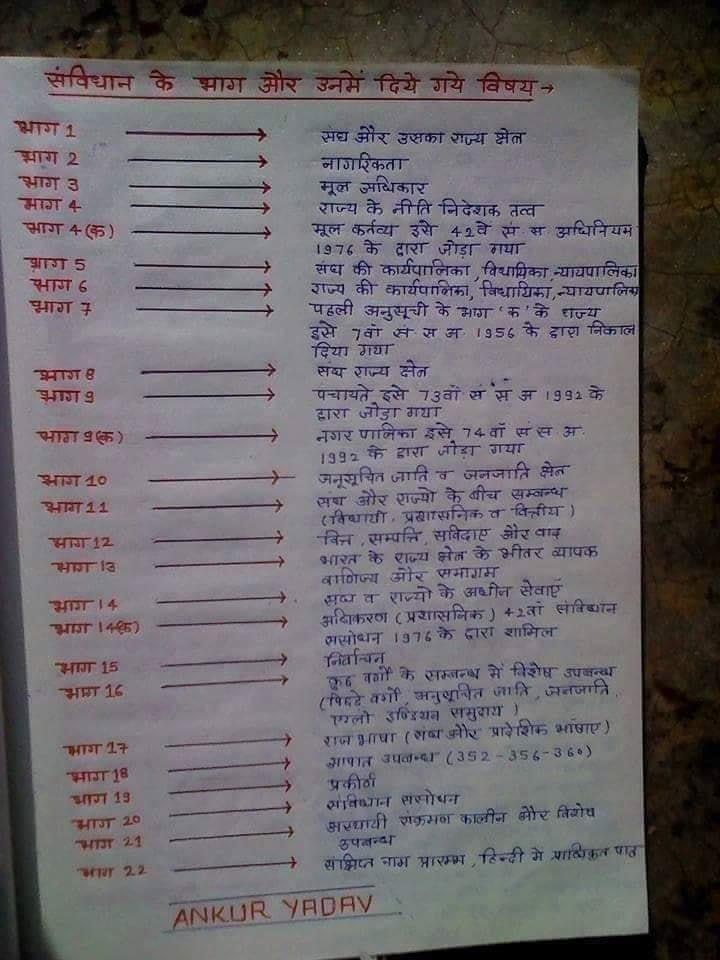 संविधान के भाग और उनमें दिये गये विषय →
भाग 1 → संघ और उसका राज्य क्षेत्र
भाग 2 → नागरिकता
भाग 3 → मूल अधिकार
भाग 4 → राज्य के नीति निदेशक तत्व
भाग 4 (क) → मूल कर्तव्य इसे 42वें सं. स. अधिनियम
1976 के द्वारा जोड़ा गया
भाग 5 → संघ की कार्यपालिका, विधायिका, न्यायपालिका
भाग 6 → राज्य की कार्यपालिका, विधायिका, न्यायपालिका
भाग 7 → पहली अनुसूची के भाग 'क' के राज्य
इसे 7वाँ सं. स. अ. 1956 के द्वारा निकाल
दिया गया
भाग 8 → संघ राज्य क्षेत्र
भाग 9 → पंचायते इसे 73वाँ सं. स. अ 1992 के
द्वारा जोड़ा गया
भाग 9(क) → नगर पालिका इसे 74वाँ सं स अ.
1992 के द्वारा जोड़ा गया
भाग 10 → अनूसूचित जाति व जनजाति क्षेत्र
भाग 11 → संघ और राज्यो के बीच सम्बन्ध
(विधायी, प्रशासनिक व वित्तीय)
भाग 12 → वित्त, सम्पत्ति, संविदाए और वाद
भाग 13 → भारत के राज्य क्षेत्र के भीतर व्यापक
वाणिज्य और समागम
भाग 14 → संघ व राज्यों के अधीन सेवाएँ
भाग 14(क) → अधिकरण (प्रशासनिक) 42वाँ संविधान
संसोधन 1976 के द्वारा शामिल
भाग 15 → निर्वाचन
भाग 16 → कुछ वर्गो के सम्बन्ध में विशेष उपबन्ध
(पिछड़े वर्गो, अनुसूचित जाति, जनजाति,
एंग्लो इण्डियन समुदाय)
भाग 17 → राज भाषा (संघ और प्रादेशिक भाषाए)
भाग 18 → आपात उपबन्ध (352-356-360)
भाग 19 → प्रकीर्ण
भाग 20 → संविधान संसोधन
भाग 21 → अस्थायी संक्रमण कालीन और विशेष
उपबन्ध
भाग 22 → संक्षिप्त नाम प्रारम्भ, हिन्दी मे प्राधिकृत पाठ
ANKUR YADAV